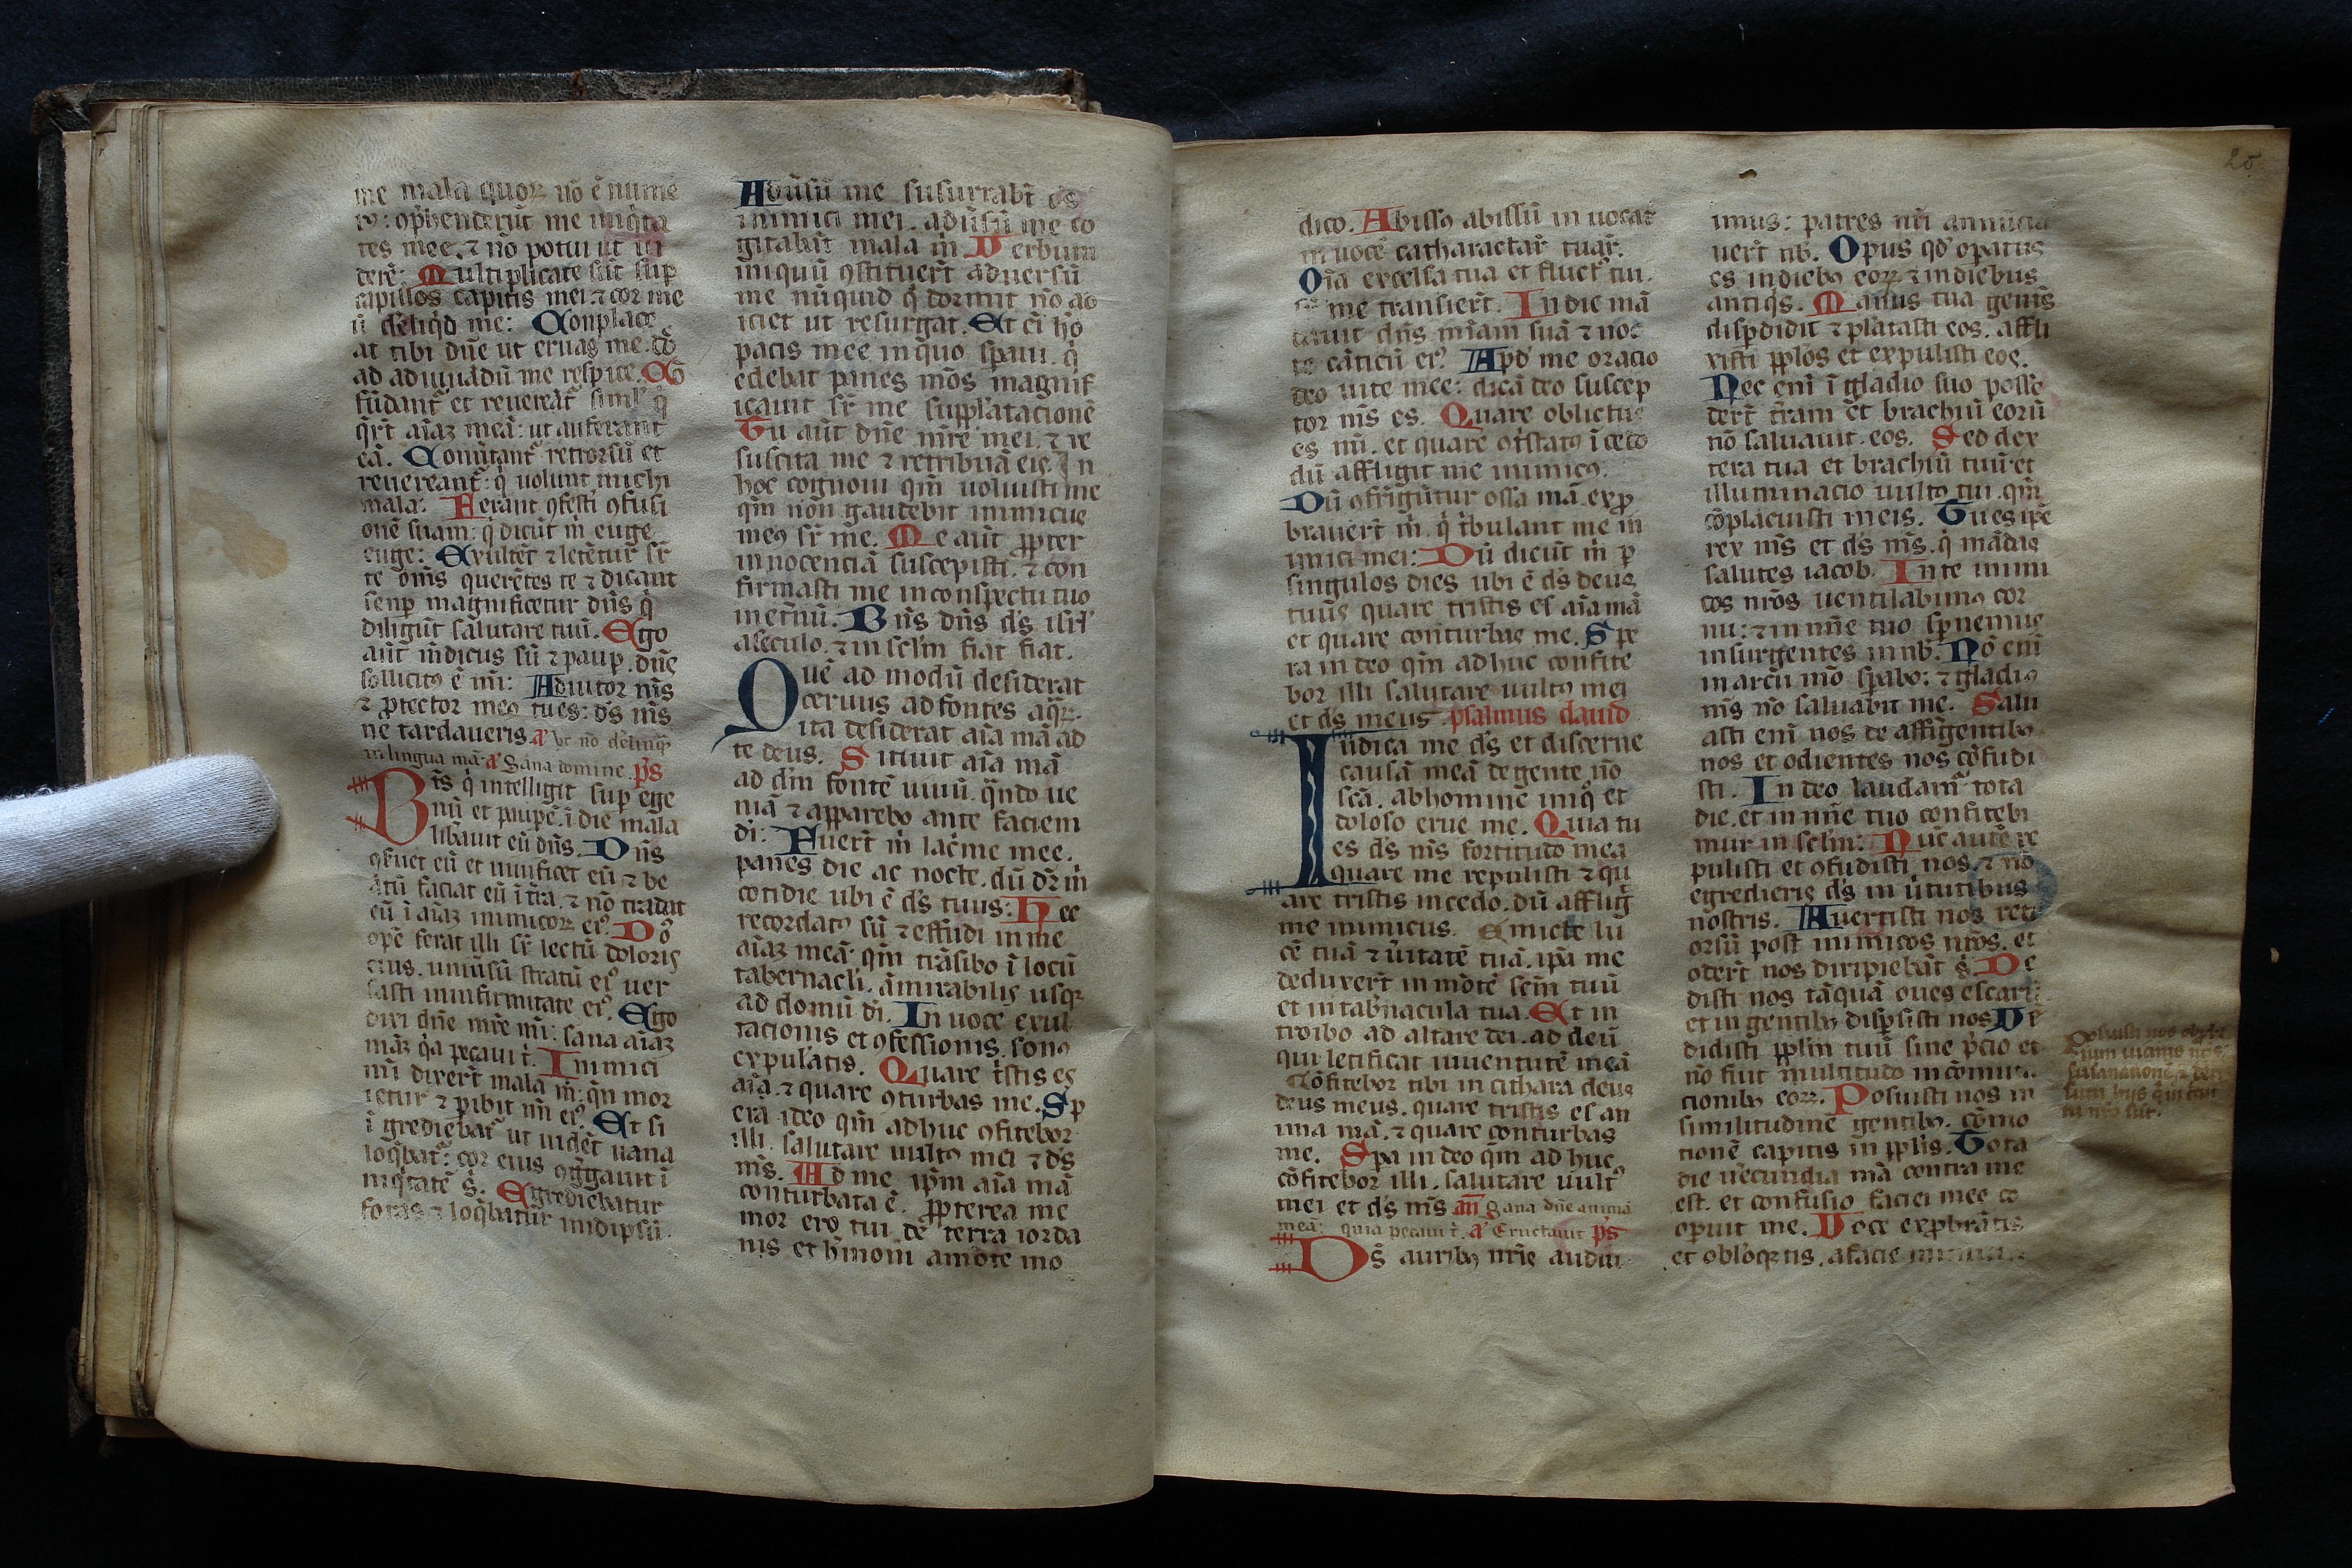 me mala quoꝝ nō ē nume
rꝰ: ꝯp̄henderūt me iniq̄ta
tes mee. ⁊ nō potui ut ui
derē: Multiplicate sūt suꝑ
capillos capitis mei ⁊ cor me
ū deliq̄d me: Conplace
at tibi dn̄e ut eruas me. dō
ad adiuuādū me respice. Cō
fūdant᷑ et reuereāt᷑ simlꝰ q̄
q̄rt̄ aīaꝫ meā: ut auferant
eā. Conūtant᷑ retrorsū et
reuereant᷑: q̄ uolunt michi
mala: Ferant ꝯfesti ꝯfusi
onē suam: q̄ dicūt m̄ euge
euge: Exultēt ⁊ letētur sr̄
te om̄s querētes te ⁊ dicant
senꝑ magnificetur dn̄s q̄
diligūt salutare tuū. Ego
aūt m̄dicus sū ⁊ pauꝑ. dn̄e
sollicitꝰ ē mi: Adiutor m̄s
⁊ ꝓtector meꝰ tu es: ds̄ m̄s
ne tardaueris. a᷑ Ut nō delinq̄
in lingua mā. a᷑ Sana domine. ps̄
Bt̄s q̄ intelligit suꝑ ege
nū et paupē. ī die mala
lib̄auit eū dn̄s. Dn̄s
ꝯ̄seruet eū et uiuificet eū ⁊ be
ātū faciat eū ī tr̄a. ⁊ nō tradat
eū ī aīaꝫ inimicoꝝ eiꝰ. Dō
opē ferat illi sr̄ lectū doloris
eius. uniūsū stratū eiꝰ uer
sasti in infirmitate eiꝰ. Ego
dixi dn̄e mr̄e mi: sana aīaꝫ
māꝫ q̄a pecaui t̄. Inimici
mi dixert̄ mala m̄: q̄n mor
ietur ⁊ ꝑibit nn̄ eiꝰ. Et si
ī grediebat᷑ ut uidet̄ uana
loq̄bat᷑: cor eius ꝯḡgauit ī
iniq̄tatē s̄. Egrediebatur
foras ⁊ loq̄batur inidipsū.
Adūsū me susurrabt̄ oēs
inimici mei. adūsū me co
gitabūt mala m̄. Verbum
iniquū ꝯstituert̄ aduersū
me nūquid q̄ dormit nō ad
iciet ut resurgat. Et eī hō
pacis mee in quo sꝑaui. q̄
edebat panes mōs magnif
icauit sr̄ me supplātacionē
Tu aūt dn̄e mr̄e mei. ⁊ re
suscita me ⁊ retribuā eis. In
hoc cognoui qm̄ uoluisti me
qm̄ nōn gaudebit inimicus
meꝰ sr̄ me. Me aūt ꝓpter
innocenciā suscepisti. ⁊ con
firmasti me in conspectu tuo
inet̄nū. Bn̄s dn̄s ds̄ isrl̄
a seculo. ⁊ in sclm̄ fiat fiat.
Quē ad modū desiderat
ceruus ad fontes aq̄ꝝ.
ita desiderat aīa mā ad
te deus. Sitiuit aīa mā
ad dm̄ fontē uiuū. q̄ndo ue
niā ⁊ apparebo ante faciem
di: Fuert̄ m̄ lac̄me mee.
panes die ac nocte. dū dr̄ m̄
cotidie ubi ē ds̄ tuus: Hec
recordatꝰ sū ⁊ effudi in me
aīaꝫ meā. qm̄ trāsibo ī locū
tabernacli. āmirabilis usqꝫ
ad domū di. In uoce exul
tacionis et ꝯfessionis. sonꝰ
expulatis. Quare t̄stis es
aīa. ⁊ quare ꝯturbas me. Sp
erā ideo qm̄ adhuc ꝯfitebor
illi. salutare uultꝰ mei ⁊ ds̄
m̄s. Ad me ip̄m aīa mā
conturbata ē. ꝓpterea me
mor ero tui de terra iorda
nis et h̄moni amōte mo
25
dico. Abissꝰ abissū in uocat
in uocē catharactar̄ tuar̄.
Oīa excelsa tua et fluct᷑ tui.
sr̄ me transiert̄. In die mā
dauit dn̄s mīam suā ⁊ noc
te cāticū eiꝰ. Apd̄ me oracio
deo uite mee: dicā deo suscep
tor m̄s es. Quare oblictus
es mi. et quare ꝯt̄statꝰ īcedo
dū affligit me inimicꝰ.
Dū ꝯfrigūtur ossa mā. exꝓ
brauert̄ m̄. q̄ tb̄ulant me in
imici mei: Dū dicūt m̄ ꝑ
singulos dies ubi ē ds̄ deus
tuus quare tristis es aīa mā
et quare conturbas me. Spe
ra in deo qm̄ adhuc confite
bor illi salutare uultꝰ mei
et ds̄ meus. psalmus dauid
Iudica me ds̄ et discerne
causā meā de gente nō
scā. ab homine iniq̄ et
doloso erue me. Quia tu
es ds̄ m̄s fortitudo mea
quare me repulisti ⁊ qu
are tristis incedo. dū affliḡ
me inimicus. Emicte lu
cē tuā ⁊ ūitatē tuā. ip̄a me
deduxert̄ in mōtē scm̄ tuū
et in tab̄nacula tua. Et in
troibo ad altare dei. ad deū
qui letificat iuuentutē meā
Cōfitebor tibi in cithara deus
deus meus. quare tristis es an
ima mā. ⁊ quare conturbas
me. Spa in deo qm̄ ad huc
cōfitebor illi. salutare uultꝰ
mei et ds̄ m̄s. an̄ Sana dn̄e animā
meā: quia pecaui t̄. a᷑ Eructauit ps̄
Ds̄ auribꝰ nr̄is audiui
imus: patres nr̄i annūcia
uert̄ nb̄. Opus qd̄ oꝑatus
es indiebꝰ eoꝝ ⁊ indiebus
antiq̄s. Manus tua gentēs
disꝑdidit ⁊ plātasti eos. affli
xisti pplōs et expulisti eos.
Nec enī ī gladio suo posse
dert̄ tr̄am et brachiū eorū
nō saluauit. eos. Sed dex
tera tua et brachiū tuū et
illuminacio uultꝰ tui. qm̄
cōplacuisti in eis. Tu es ip̄e
rex m̄s et ds̄ m̄s. q̄ mādas
salutes iacob. In te inimi
cos nr̄os uentilabimꝰ cor
nu: ⁊ in nn̄e tuo sꝑnemus
insurgentes in nb̄. Nō enī
in arcu mō sꝑabo: ⁊ gladiꝰ
m̄s nō saluabit me. Salu
asti enī nos de affligentibꝰ
nos et odientes nos cōfudi
sti. In deo laudam᷑ tota
die. et in nn̄e tuo confitebi
mur in sclm̄: Nūc autē re
pulisti et ꝯfudisti nos. ⁊ nō
egredieris ds̄ in ūtutibus
nostris. Auertisti nos retr
orsū post inimicos nr̄os. et
odert̄ nos diripiebāt s̄. De
disti nos tāquā oues escarū
et in gentibꝰ disꝑsisti nos. Ve
didisti pplm̄ tuū sine p̄cio et
nō fuit multitudo in cōmuta
cionibꝰ eoꝝ. Posuisti nos in
similitudinē gentibꝰ. cōmo
tionē capitis in pplis̄. Tota
die uerecundia mā contra me
est. et confusio faciei mee co
oꝑuit me. Voce exꝓbrātis
et obloq̄ntis. a facie inimici
Posuisti nos obpbr̄
ium uicinis nr̄is